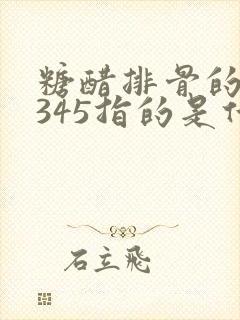 糖醋排骨的
345指的是什
石立飛